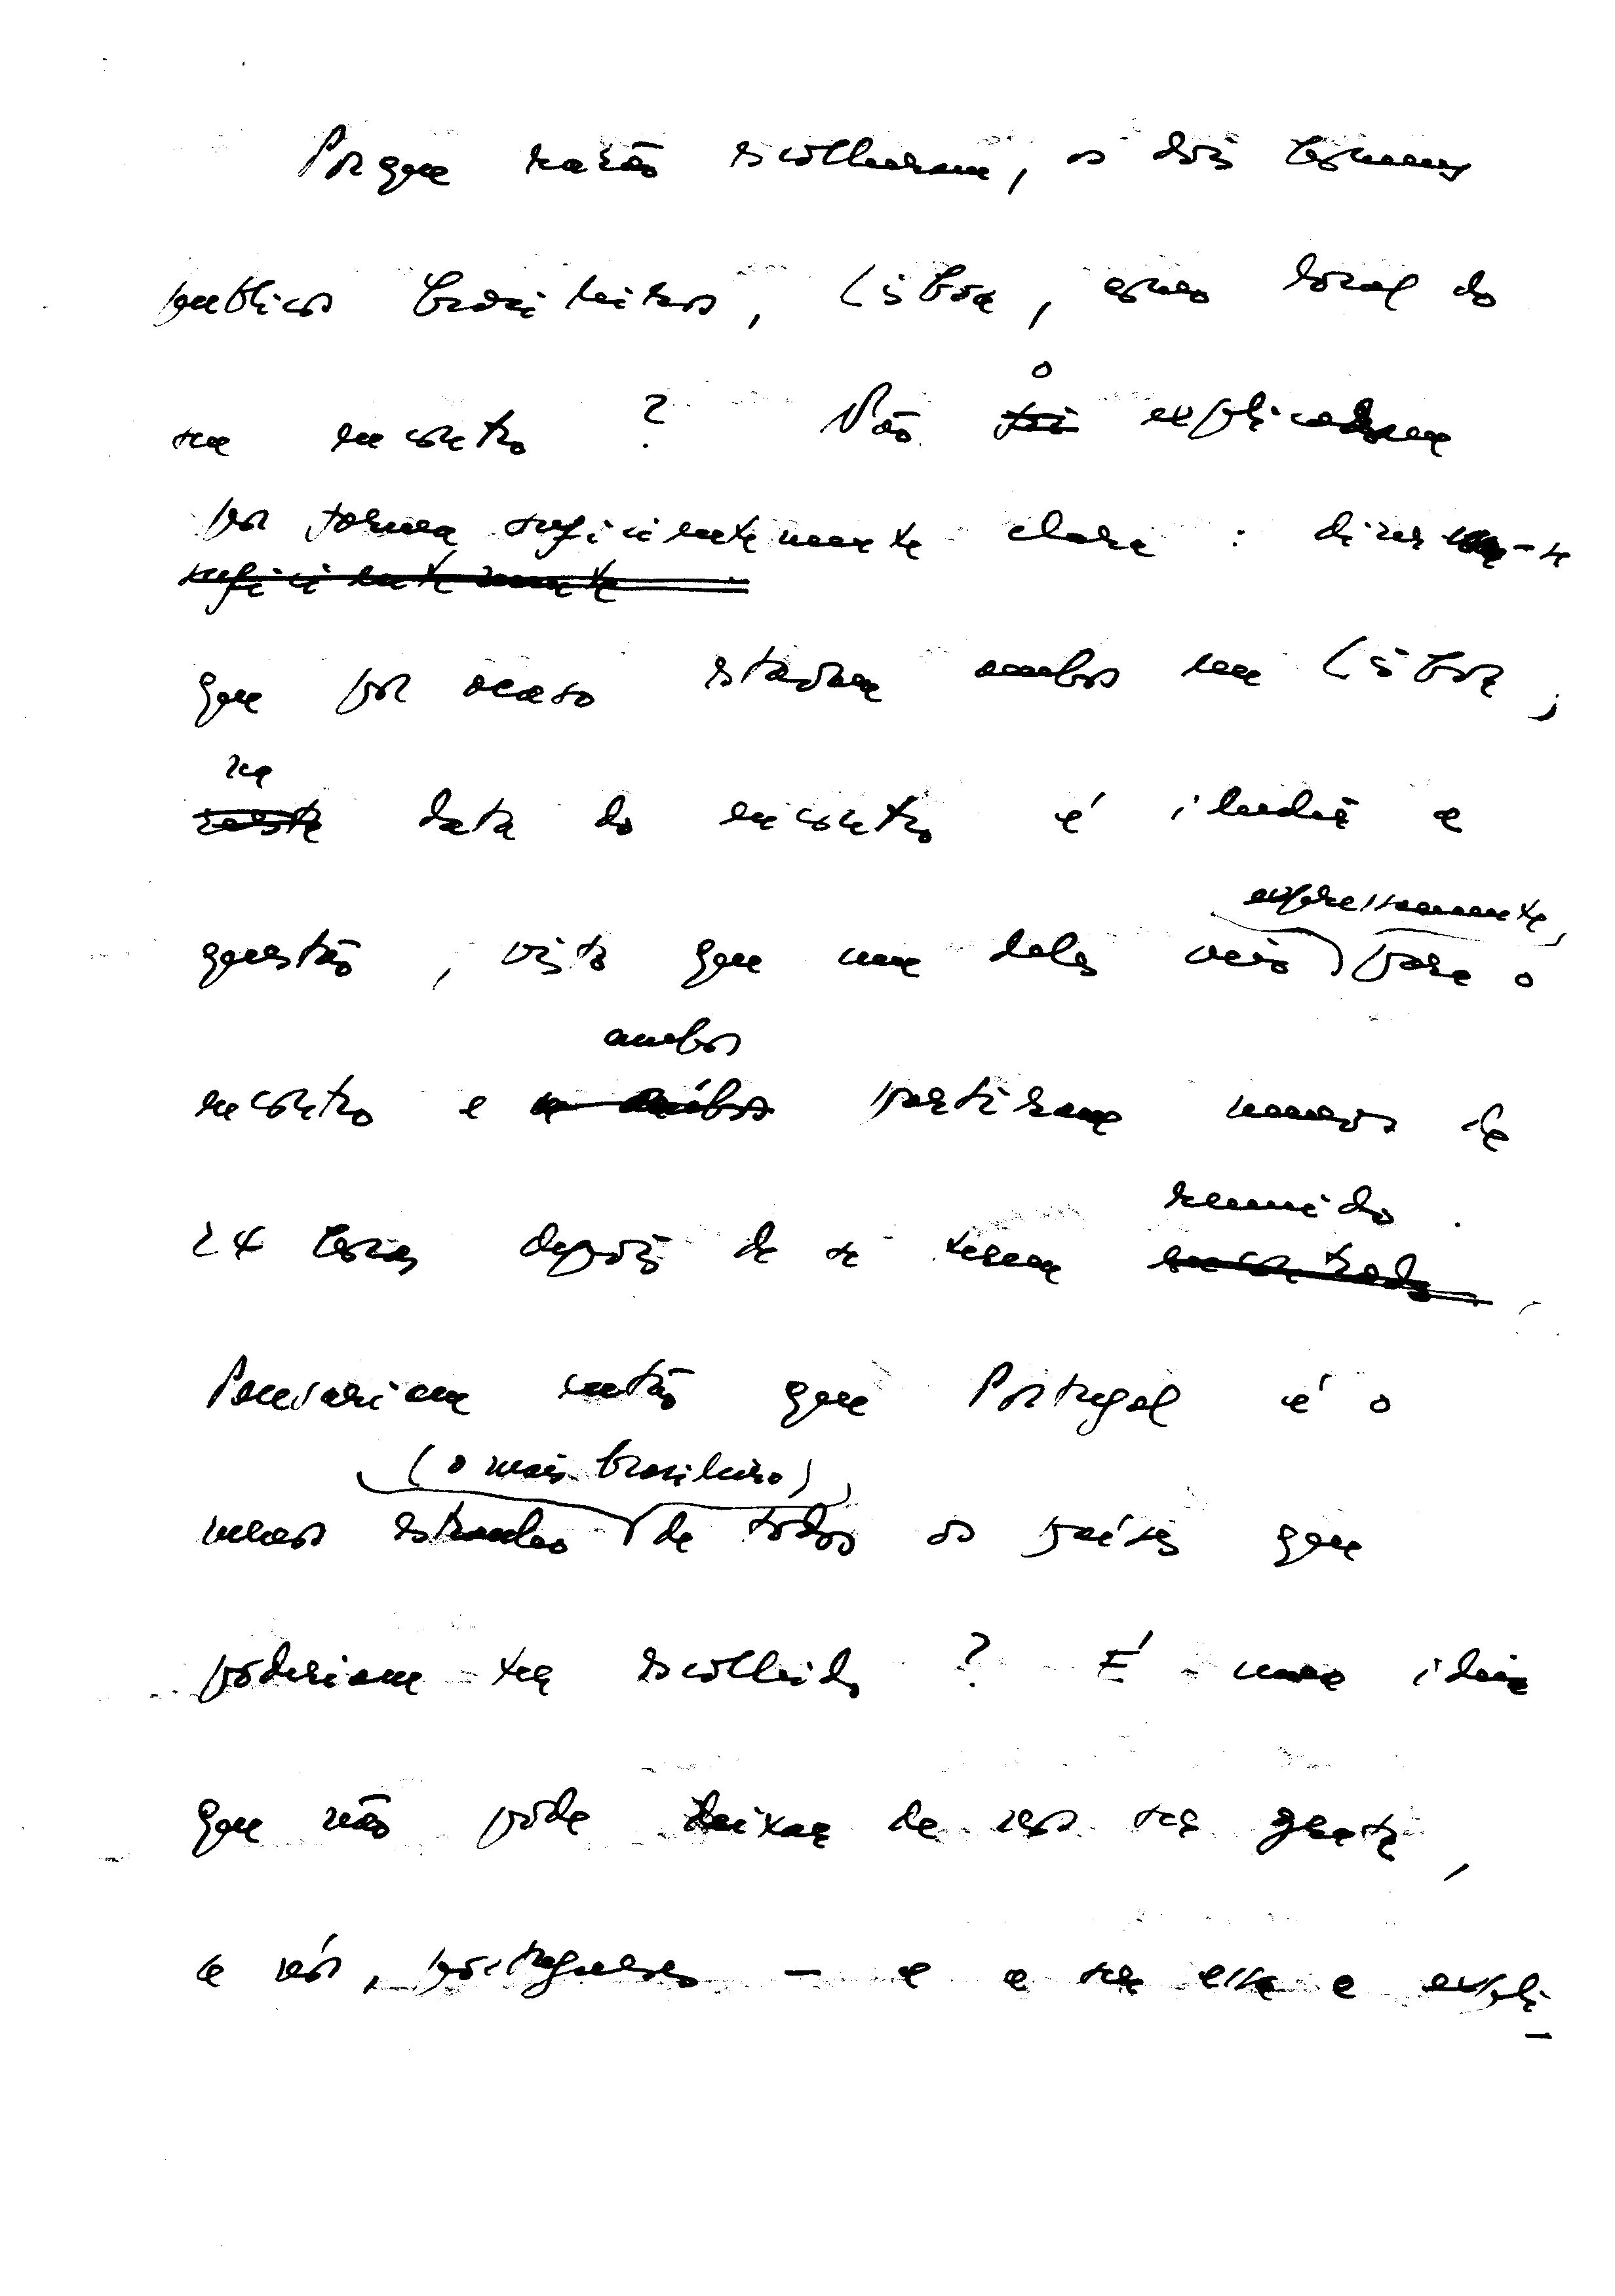 Porque razão escolheram, os dois homens
publicos brasileiros, Lisboa, como local do
seu encontro? Não
o
foi explicaram
por forma suficientemente clara: dizer -se
suficientemente
que por acaso estavam ambos em Lisboa,
na
nesta data do encontro é iludir a
expressamente,
questão, visto que um deles veio para o
ambos
encontro e e ambos partiram menos de
reunido.
24 horas depois de se terem encontrado.
Pensariam então que Portugal é o
(o mais brasileiro)
menos estranho de todos os países que
poderiam ter escolhido? É uma ideia
que não póde deixar de nos ser grata,
a nós, portugueses — e a ser essa a expli-